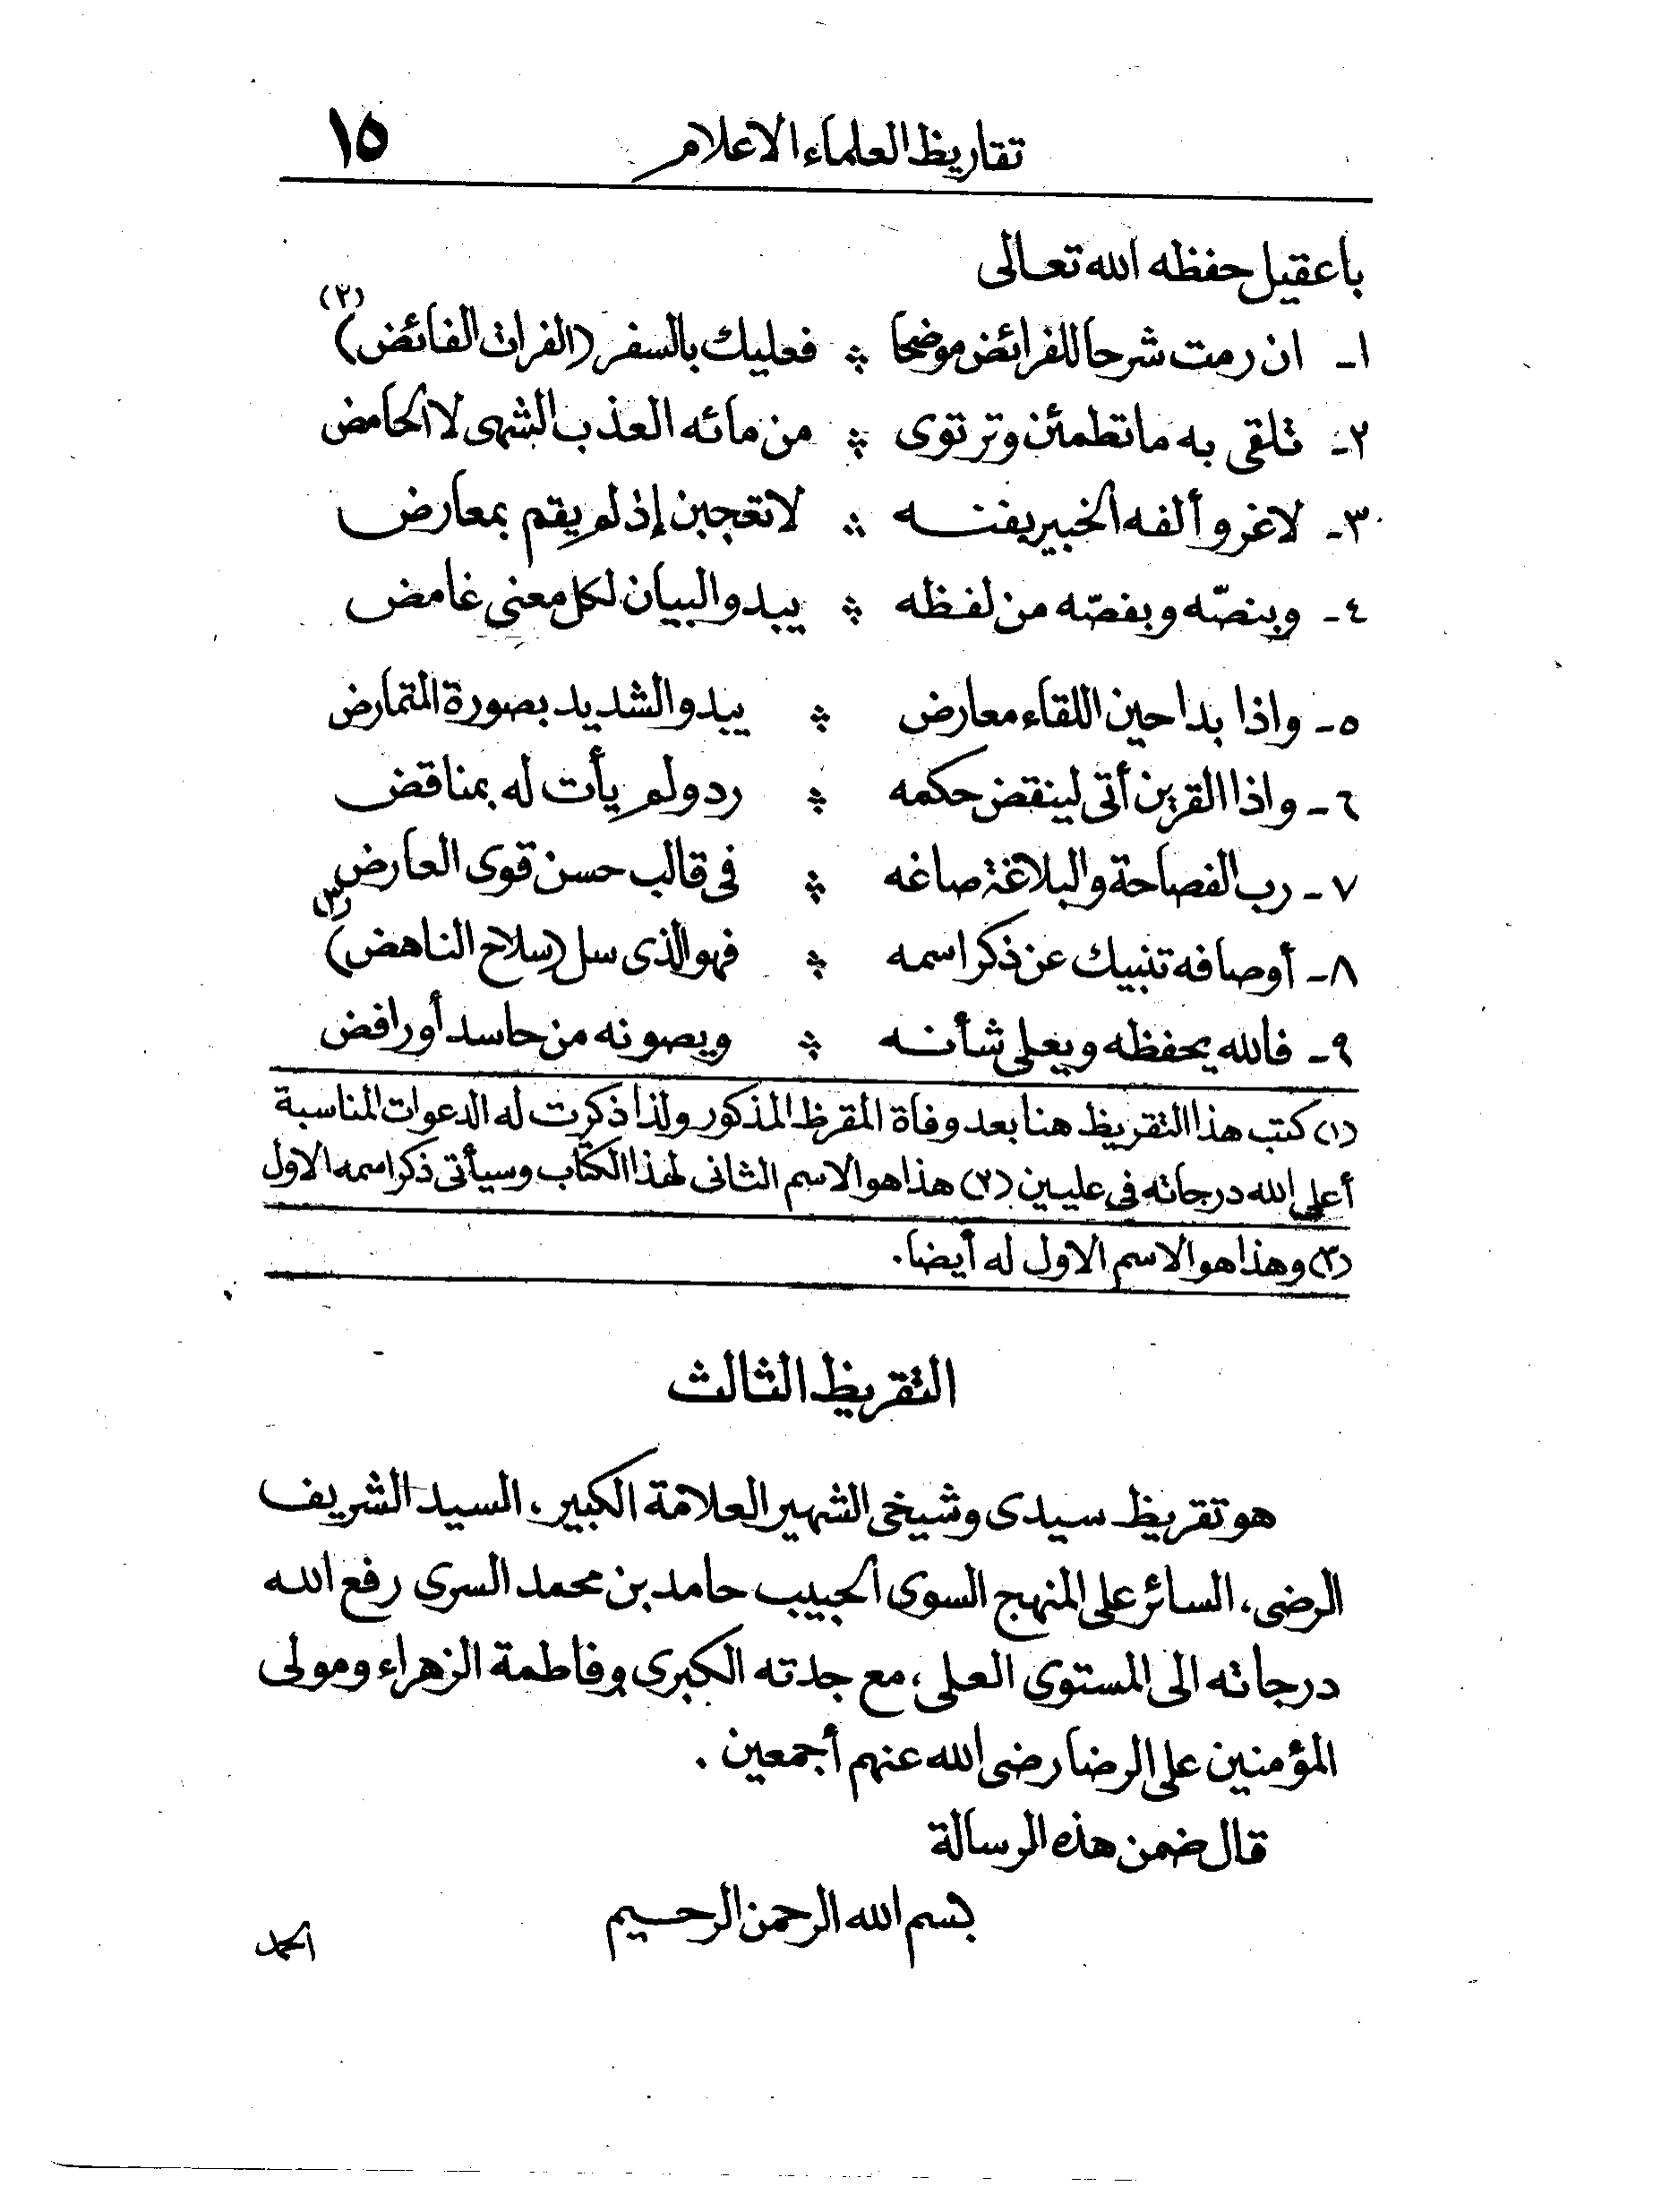 تقاريظ العلماء الاعلام ١٥
باعقيل حفظه الله تعالى
١- ان رمت شرحا للفرائض موضحا ※ فعليك بالسفر (الفرات الفائض) (٢)
٢- تلقى به ما تطمئن وترتوى ※ من مائه العذب الشهى لا الحامض
٣- لا غرو ألفه الخبير بفنه ※ لا تعجبن إذ لم يقم بمعارض
٤- وبنصّه وبفصّه من لفظه ※ يبدو البيان لكل معنى غامض
٥- واذا بدا حين اللقاء معارض ※ يبدو الشديد بصورة المتمارض
٦- واذا القرين أتى لينقض حكمه ※ رد ولم يأت له بمناقض
٧- رب الفصاحة والبلاغة صاغه ※ فى قالب حسن قوى العارض
٨- أوصافه تنبيك عن ذكر اسمه ※ فهو الذى سل (سلاح الناهض) (٣)
٩- فالله يحفظه ويعلى شأنه ※ ويصونه من حاسد أو رافض
(١) كتب هذا التقريظ هنا بعد وفاة المقرظ المذكور ولذا ذكرت له الدعوات المناسبة
أعلى الله درجاته فى عليين (٢) هذا هو الاسم الثانى لهذا الكتاب وسيأتى ذكر اسمه الاول
(٣) وهذا هو الاسم الاول له أيضا.
التقريظ الثالث
هو تقريظ سيدى وشيخى الشهير العلامة الكبير، السيد الشريف
الرضى، السائر على المنهج السوى الحبيب حامد بن محمد السرى رفع الله
درجاته الى المستوى العلى، مع جدته الكبرى وفاطمة الزهراء ومولى
المؤمنين على الرضا رضى الله عنهم أجمعين .
قال ضمن هذه الرسالة
بسم الله الرحمن الرحيم
الحمد